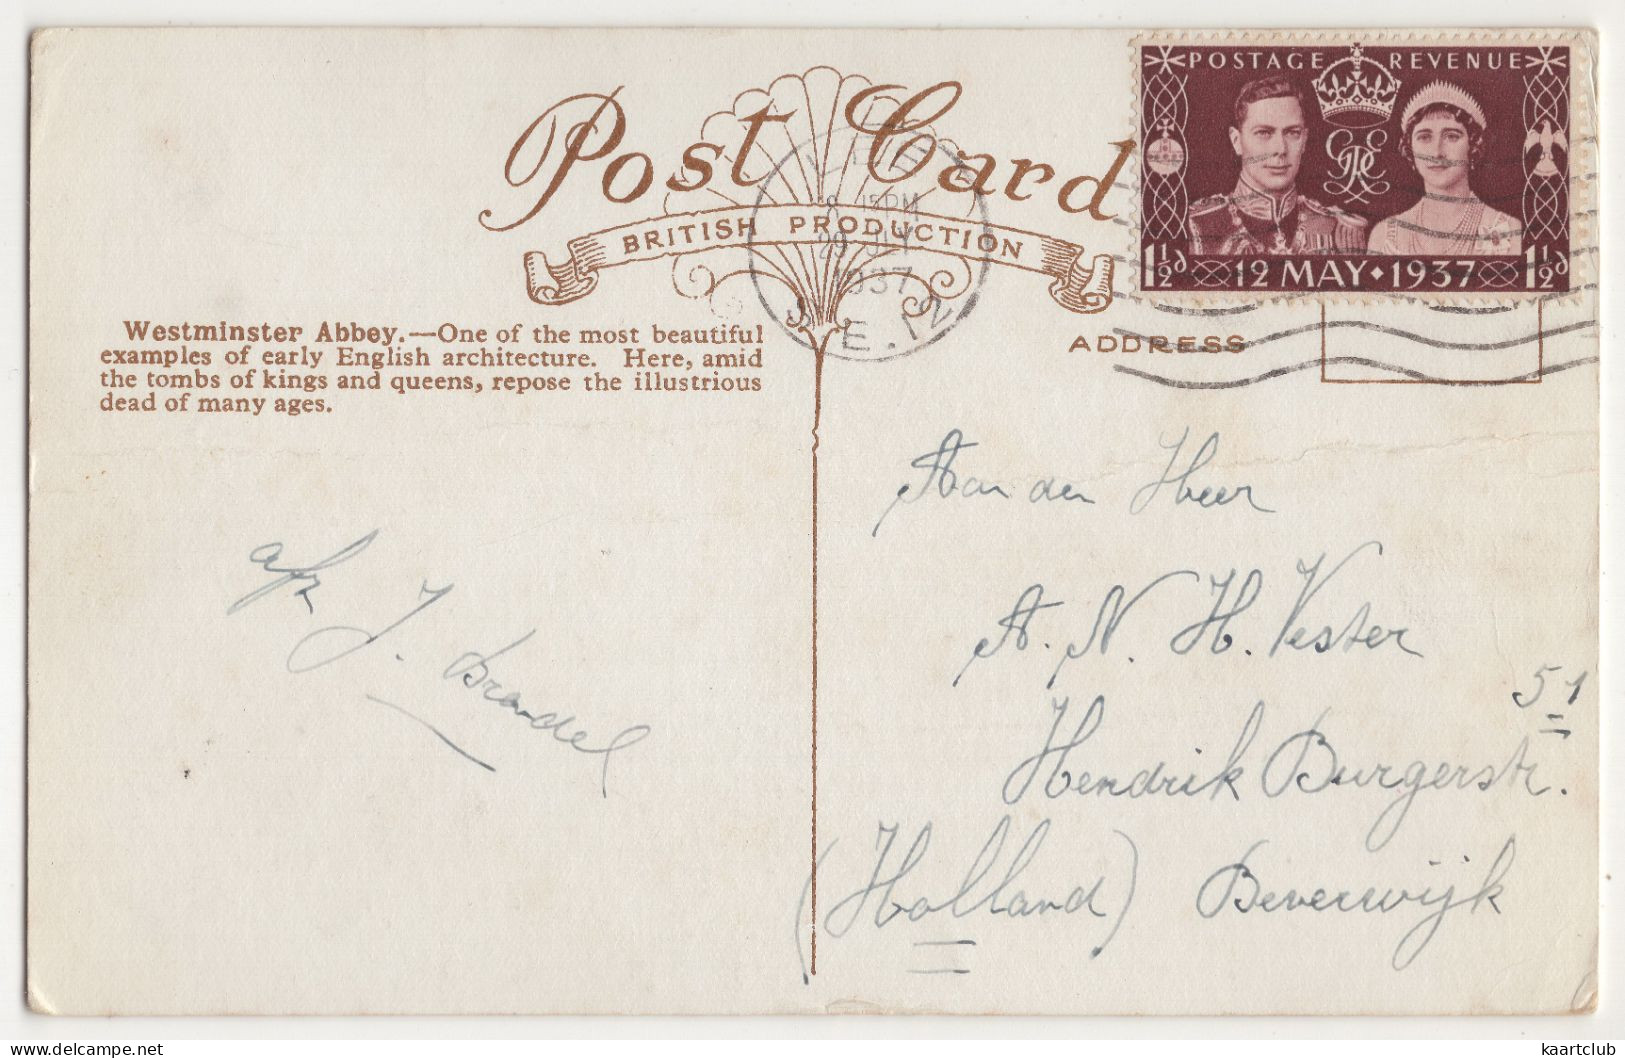 Post Card
BRITISH PRODUCTION
POSTAGE REVENUE
1½d 12 MAY · 1937 1½d
8 15 PM
29 JLY
1937
S.E.12
Westminster Abbey.—One of the most beautiful
examples of early English architecture. Here, amid
the tombs of kings and queens, repose the illustrious
dead of many ages.
ADDRESS
afz J. Brandel
Aan den Heer
A. N. H. Vester
51
Hendrik Burgerstr.
(Holland) Beverwijk
kaartclub